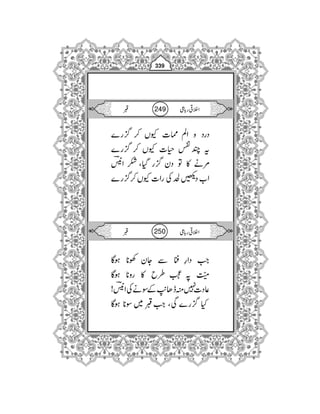 339
اخلاقی رباعی 249 قبر
درد و الم ممات کیوں کر گزرے
یہ چند نفس حیات کیوں کر گزرے
مرنے کا تو دن گزر گیا، شکر انیسؔ
اب دیکھیں لحد کی رات کیوں کر گزرے
اخلاقی رباعی 250 قبر
جب دارِ فنا سے جان کھونا ہوگا
میّت پہ عجب طرح کا رونا ہوگا
عادت نہیں منہ ڈھانپ کے سونے کی انیسؔ!
کیا گزرے گی، جب قبر میں سونا ہوگا